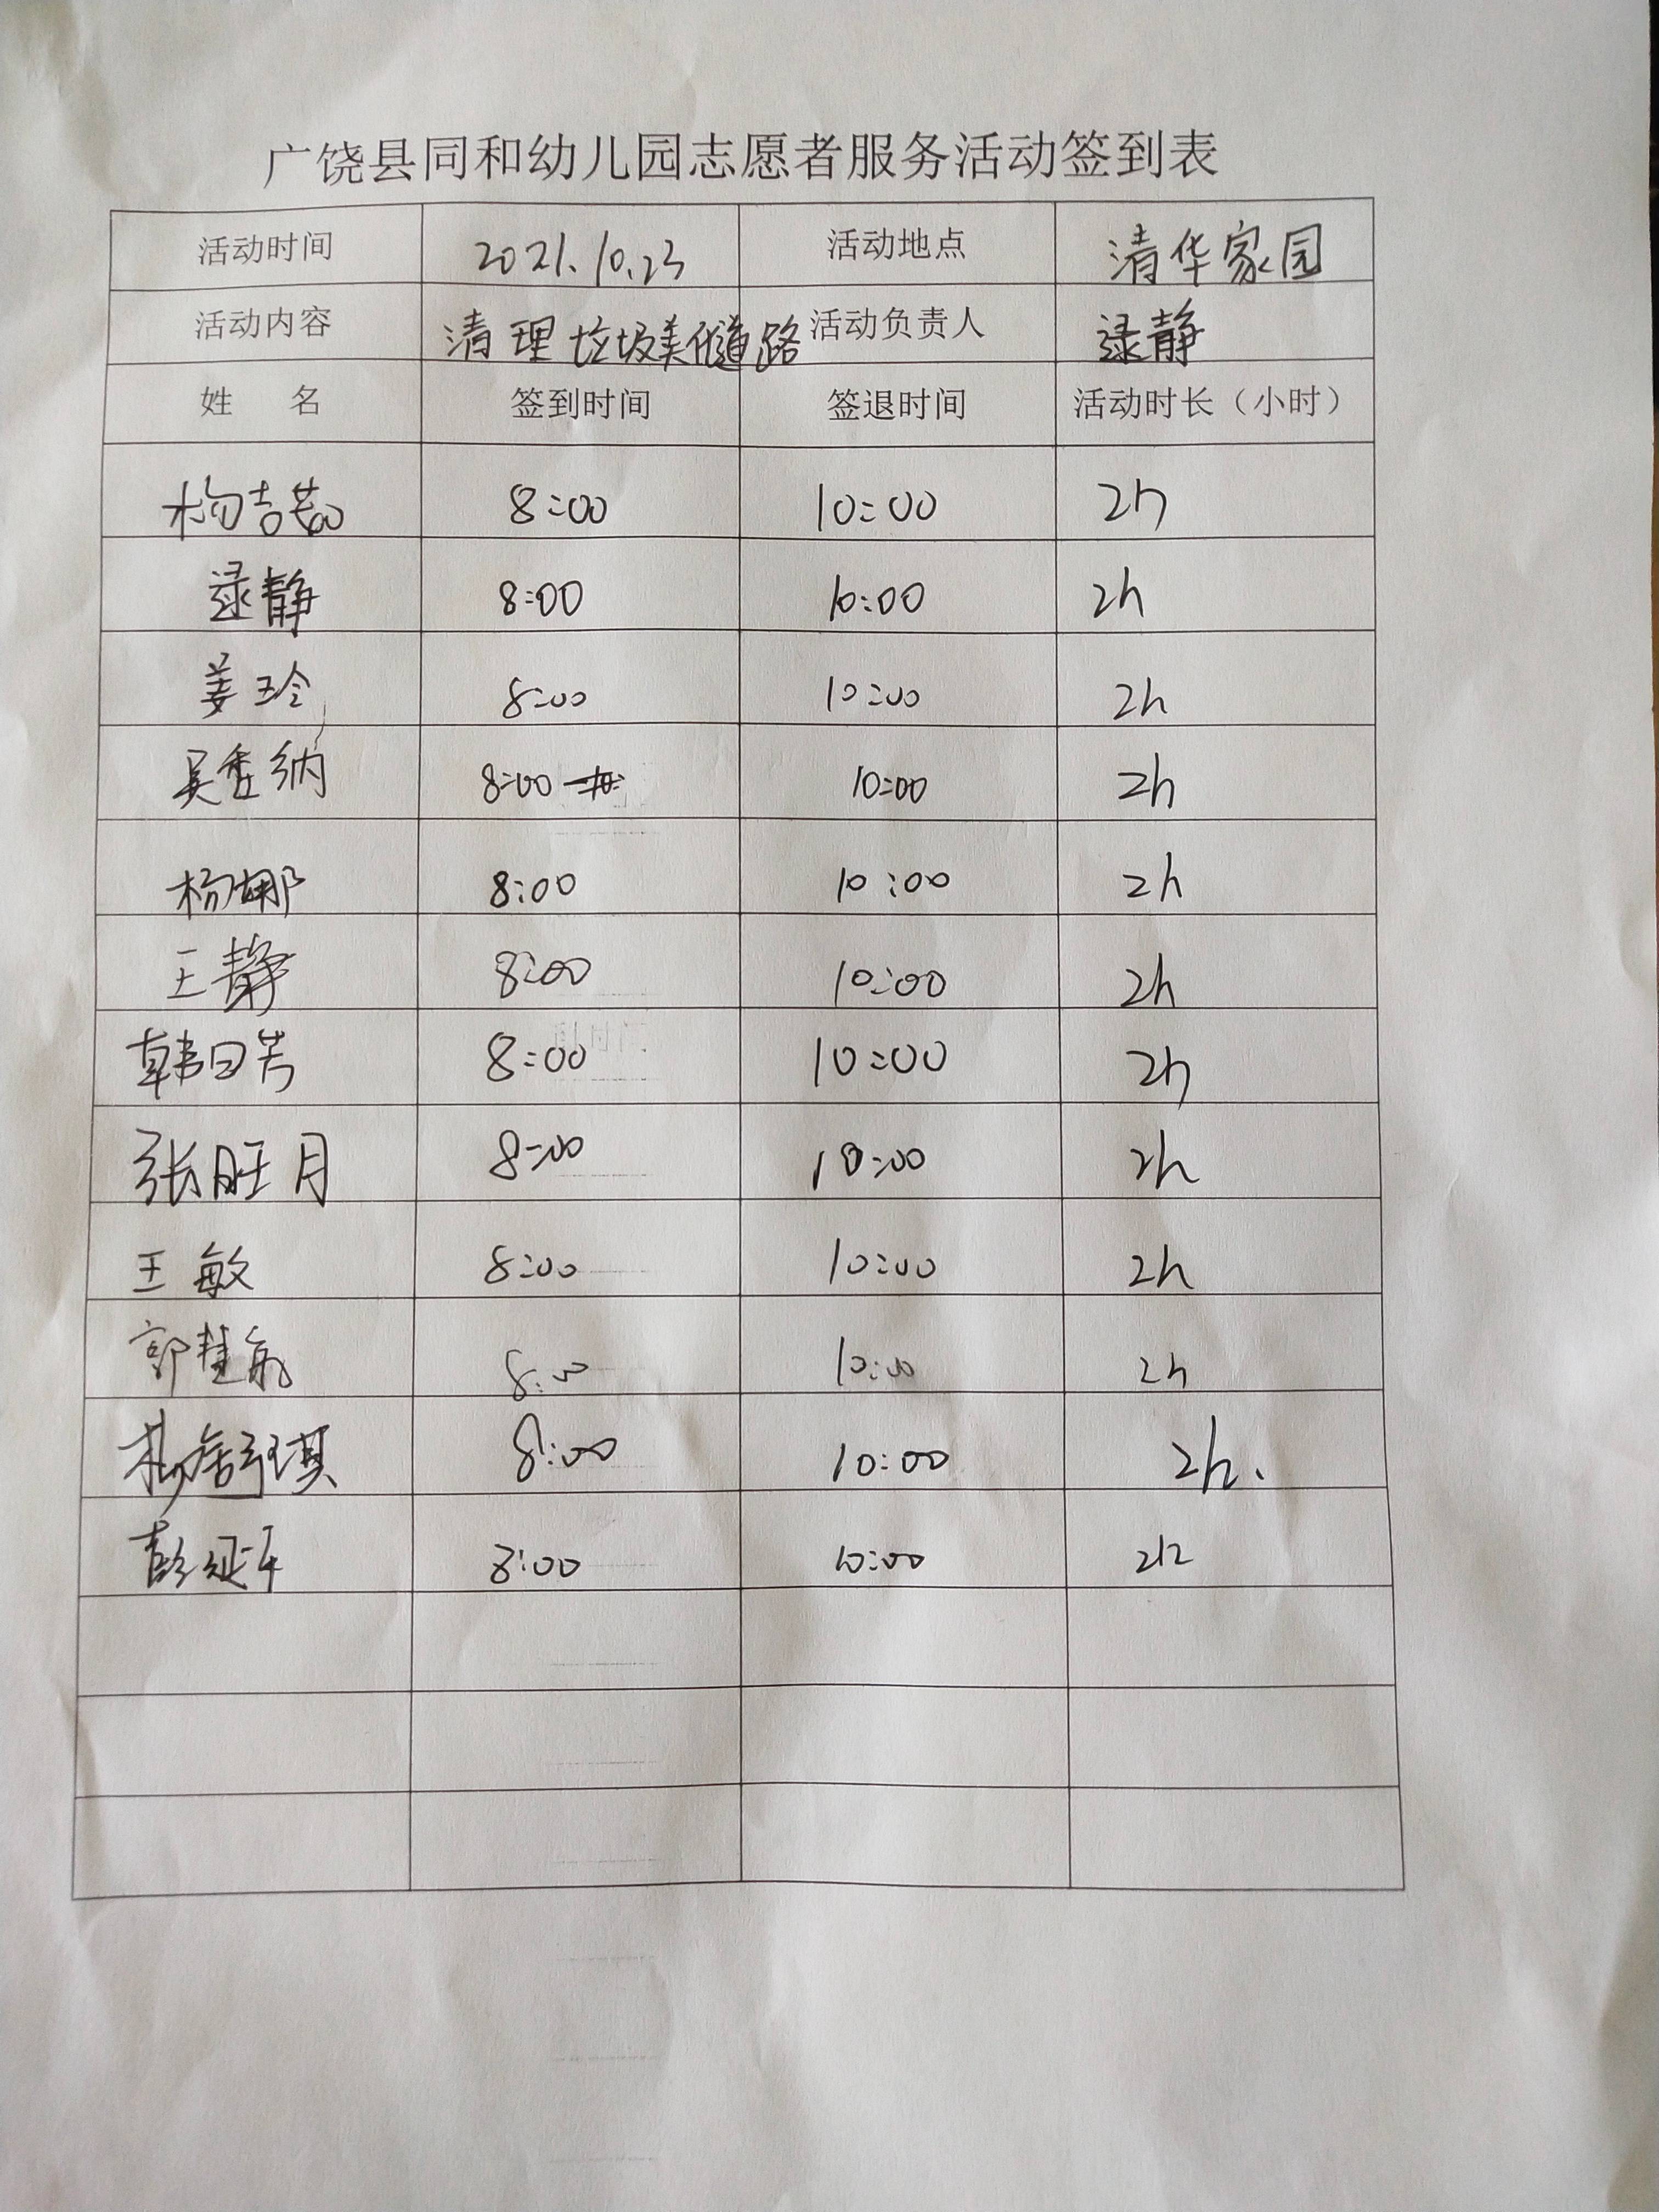 广饶县同和幼儿园志愿者服务活动签到表
活动时间 2021.10.23 活动地点 清华家园
活动内容 清理垃圾美化道路 活动负责人 逯静
姓 名 签到时间 签退时间 活动时长（小时）
杨吉茹 8:00 10:00 2h
逯静 8:00 10:00 2h
姜玲 8:00 10:00 2h
吴秀纳 8:00 10:00 2h
杨娜 8:00 10:00 2h
王静 8:00 10:00 2h
韩曰芳 8:00 10:00 2h
张旺月 8:00 10:00 2h
王敏 8:00 10:00 2h
郭慧敏 8:00 10:00 2h
杨舒琪 8:00 10:00 2h.
彭延千 8:00 10:00 2h